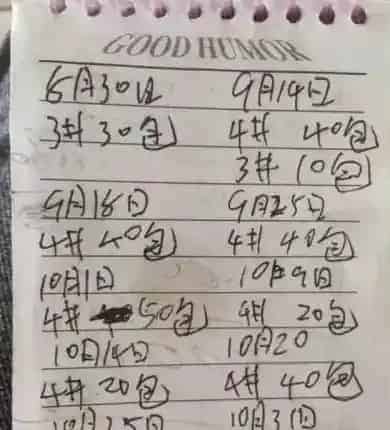 GOOD HUMOR
8月30日 9月14日
3井 30包 4井 40包
3井 10包
9月18日 9月25日
4井 40包 4井 40包
10月1日 10月9日
4井 50包 4井 20包
10月14日 10月20
4井 20包 4井 40包
10月25日 10月31日